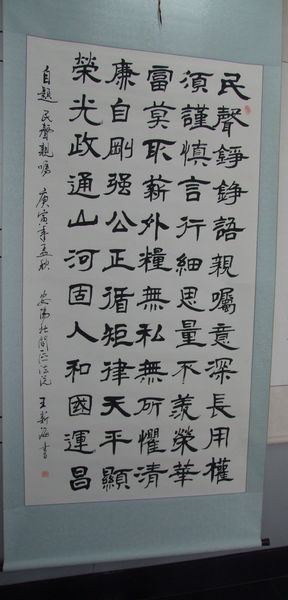 民聲錚錚語親囑意深長用權
須謹慎言行細思量不羨榮華
富莫取薪外糧無私無所懼清
廉自剛强公正循矩律天平顯
榮光政通山河固人和國運昌
自題民聲親嘱 庚寅年孟秋 安陽北關區法院 王新海書